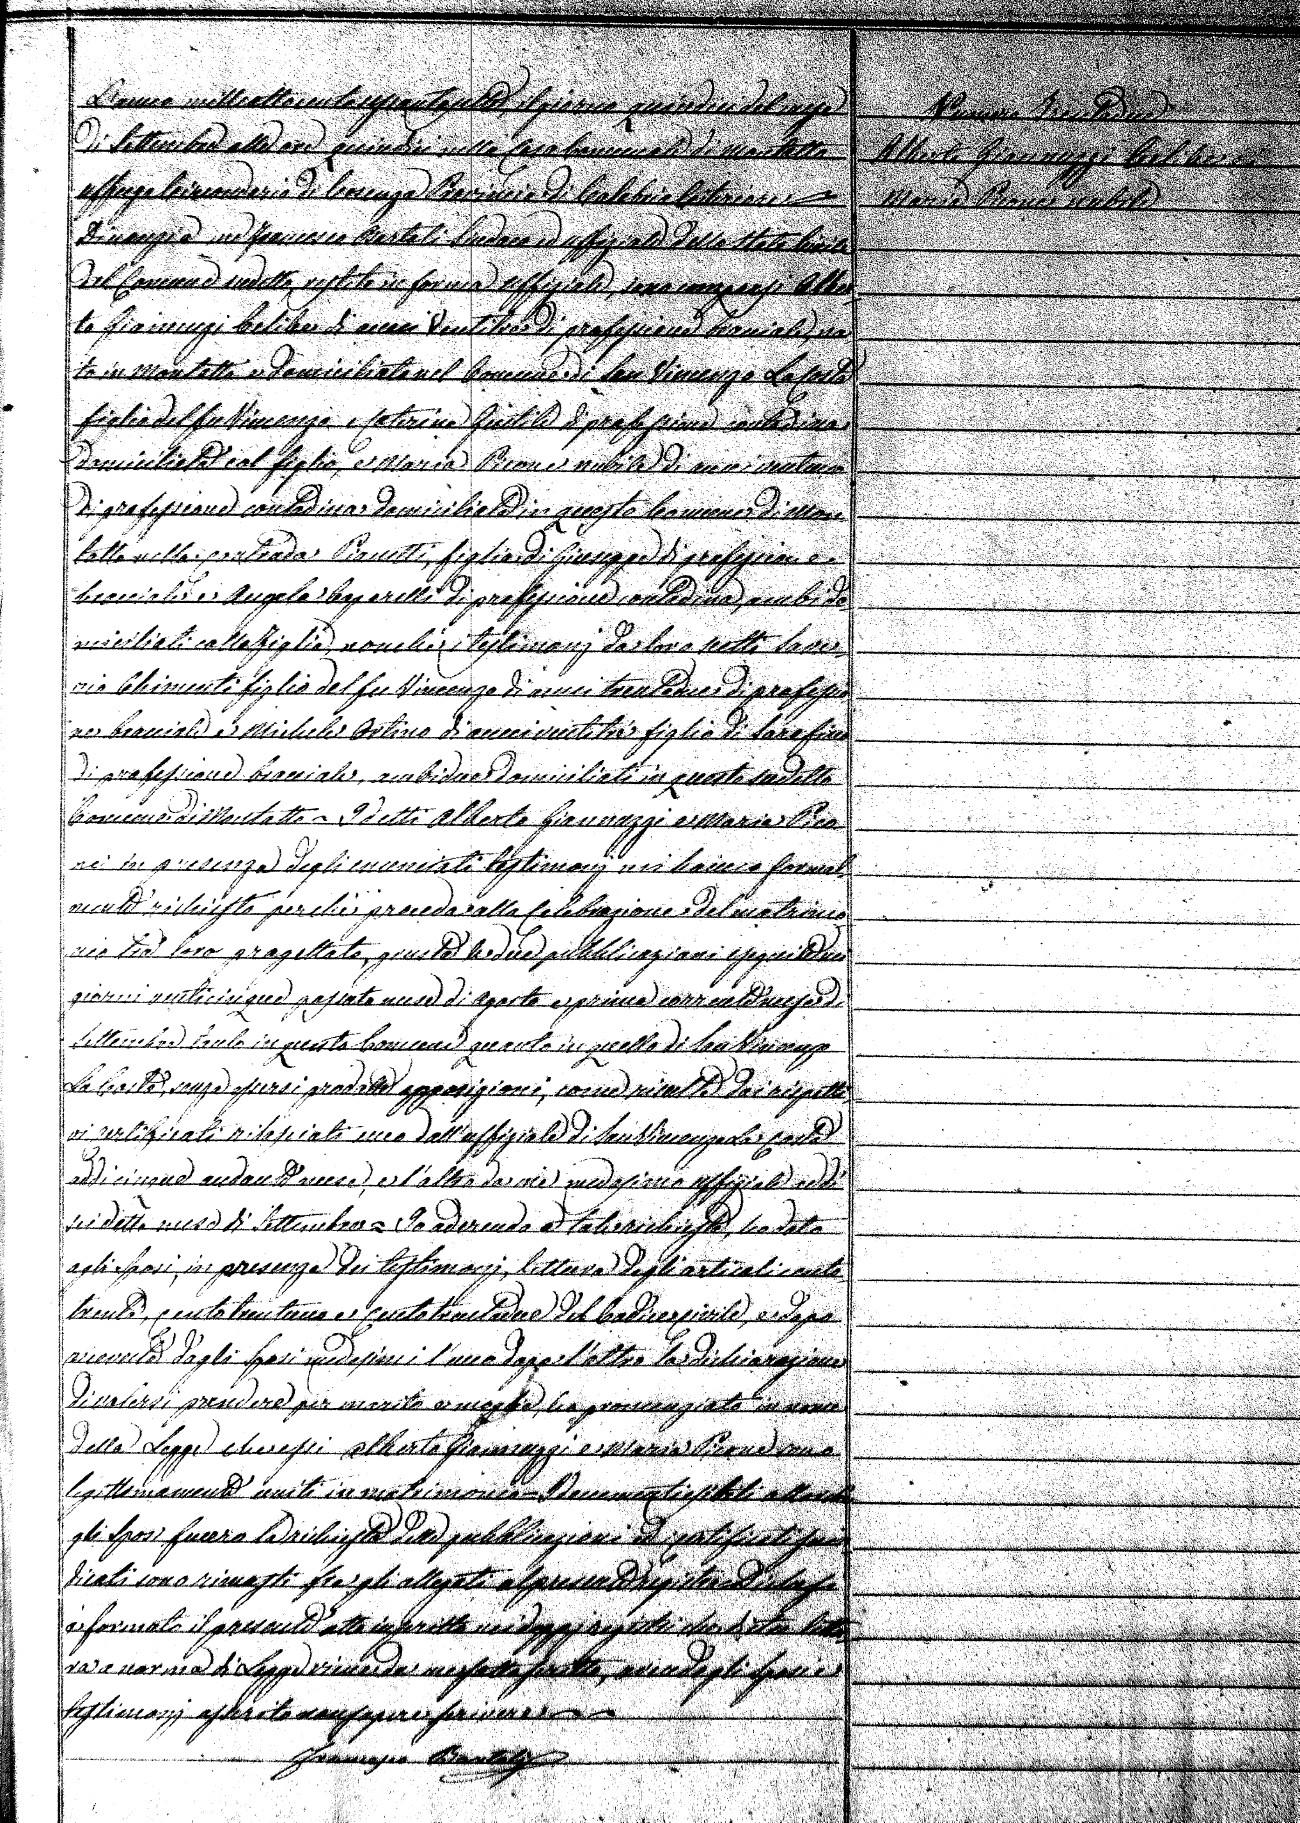 L'anno milleottocento il giorno quindici del mese
di Settembre alle ore quindici nella Casa Comunale di Montalto
Uffugo Circondario di Cosenza Provincia di Calabria Citeriore
Dinanzi a me Francesco Bartoli Sindaco ed uffiziale dello Stato Civile
del Comune sudetto, vestito in forma uffiziale, sono comparsi Alber
to Giannuzzi Celibe di anni Ventitre di professione bracciale, na
to in Montalto e domiciliato nel Comune di San Vincenzo La Costa
figlio del fu Vincenzo e Caterina Gentile di professione contadina
domiciliata col figlio, e Maria Picone nubile di anni ventuno
di professione contadina domiciliata in questo Comune di Mon
talto nella contrada Pianetti, figlia di Giuseppe di professione
bracciale e Angela Caparelli di professione contadina, ambi do
miciliati colla figlia, nonchè i testimonj da loro scelti Save
rio Chimenti figlio del fu Vincenzo di anni trentadue di professio
ne bracciale e Michele di anni ventitrè figlio di Serafino
di professione bracciale, ambidue domiciliati in questo sudetto
Comune di Montalto - I detti Alberto Giannuzzi e Maria Pico
ne in presenza degli enunciati testimonj mi hanno formal
mente richiesto perchè proceda alla Celebrazione del matrimo
nio tra loro progettato, giusta le due pubblicazioni eseguite nei
giorni venticinque passato mese di Agosto e primo corrente mese di
Settembre tanto in questo Comune quanto in quello di San Vincenzo
La Costa, senza essersi prodotte opposizioni, come risulta dai rispetti
vi certificati rilasciati uno dall'uffiziale di San Vincenzo La Costa
addì cinque andante mese, e l'altro da me medesimo uffiziale addì
sei detto mese di Settembre - Io aderendo a tale richiesta, ho dato
agli sposi, in presenza dei testimonj, lettura degli articoli cento
trenta, centotrentuno e centotrentadue del Codice civile, e dopo
ricevuta dagli sposi medesimi l'uno dopo l'altro la dichiarazione
di volersi prendere per marito e moglie, ho pronunziato in nome
della Legge che essi Alberto Giannuzzi e Maria Picone sono
legittimamente uniti in matrimonio -
gli sposi fecero la richiesta delle pubblicazioni ed i certificati in
dicati sono rimasti fra gli allegati al presente registro
è formato il presente atto inscritto nei doppj registri che data lettu
ra a norma di Legge viene da me sottoscritto, avendo gli sposi e
testimonj asserito non sapere scrivere
Francesco Bartoli
Numero Trentadue
Alberto Giannuzzi Celibe con
Maria Picone nubile